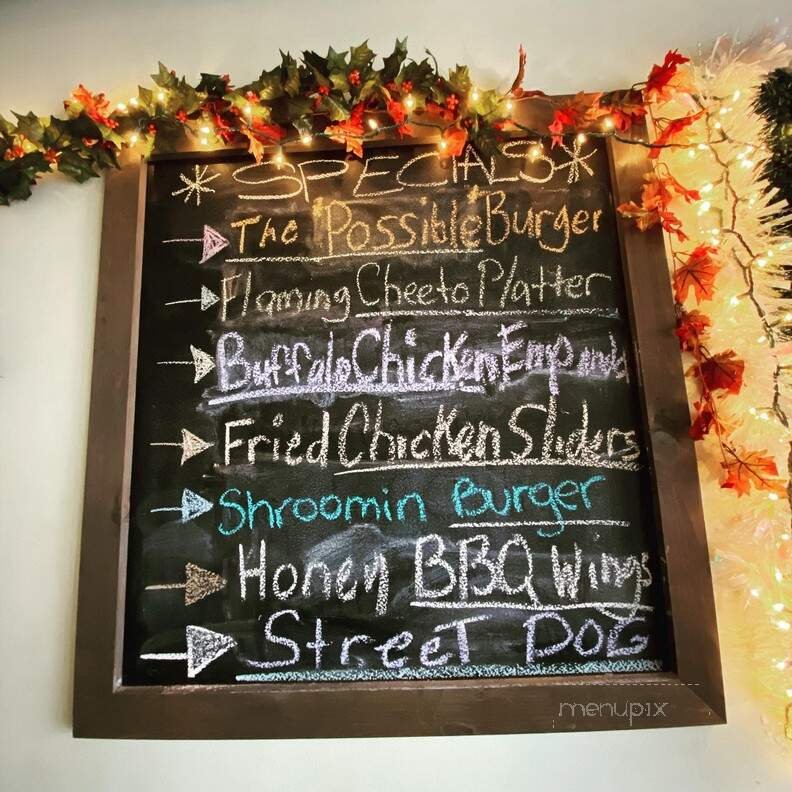 *SPECIALS*
The "Possible" Burger
Flaming Cheeto Platter
Buffalo Chicken
Fried Chicken Sliders
Shroomin Burger
Honey BBQ Wings
Street Dog
menupix